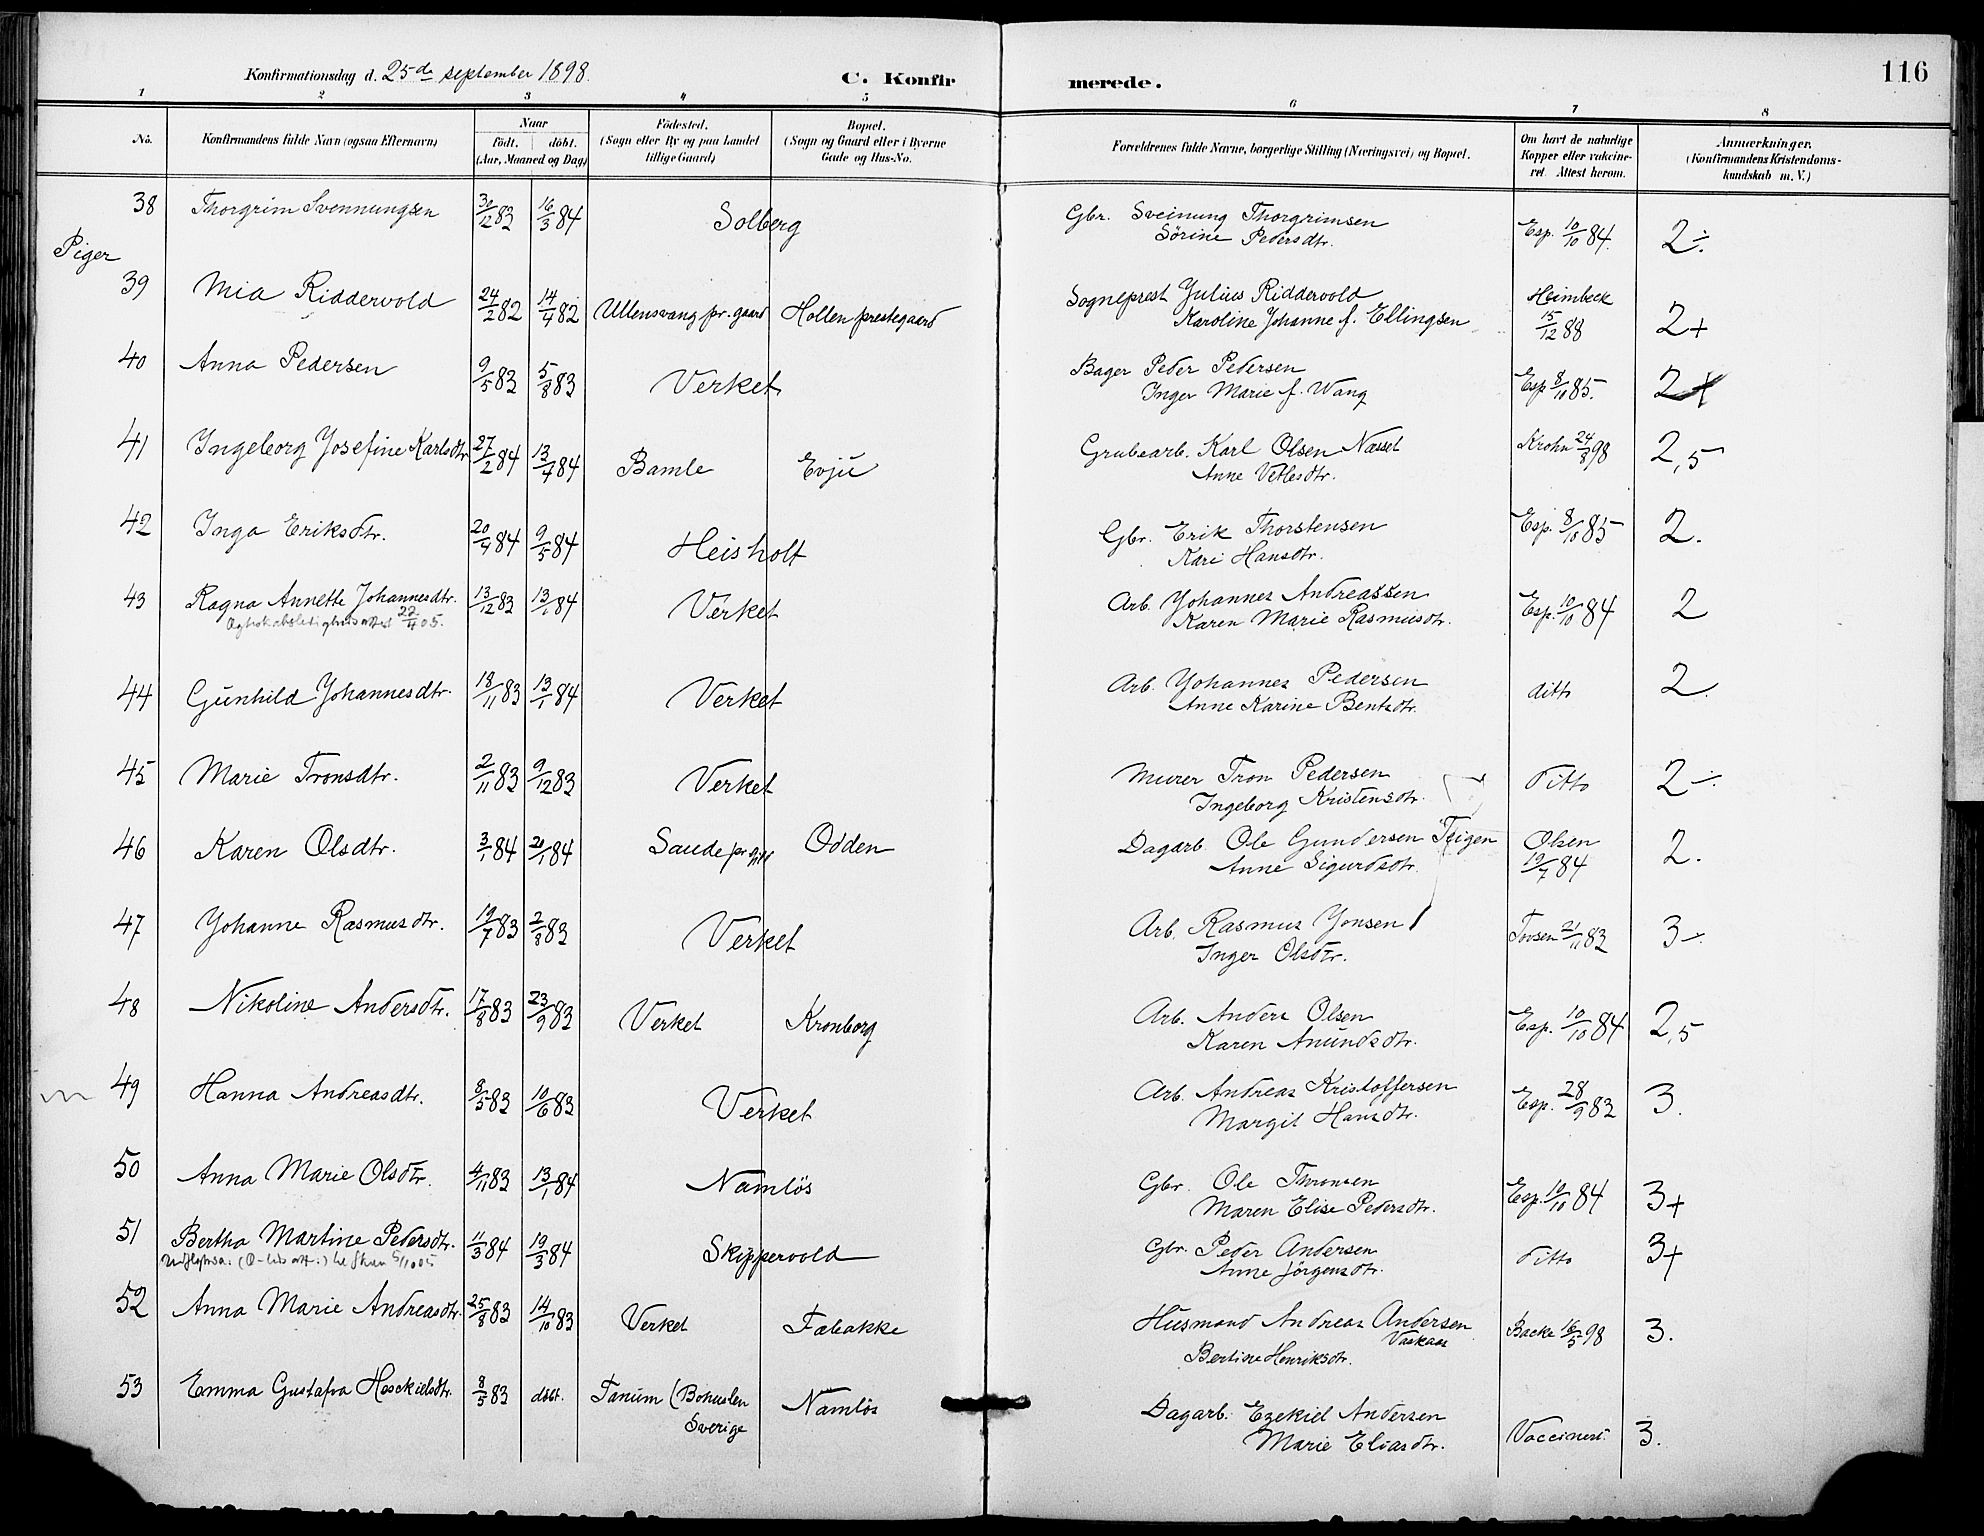 Konfirmationsdag d. 25de september 1898.
C. Konfirmerede.
116
1 2 3 4 5 6 7 8
No. Konfirmandens fulde Navn (ogsaa Efternavn) Naar födt. döbt. (Aar, Maaned og Dag) Födested. (Sogn eller By og paa Landet tillige Gaard) Bopæl. (Sogn og Gaard eller i Byerne Gade og Hus-No. Forældrenes fulde Navne, borgerlige Stilling (Næringsvei) og Bopæl. Om havt de naturlige Kopper eller vakcineret. Attest herom. Anmærkninger. (Konfirmandens Kristendomskundskab m. V.)
38 Thorgrim Svennungsen 30/12 83 16/3 84 Solberg Gbr. Sveinung Thorgrimsen Esp. 10/10 84. 2÷
Sörine Pedersdtr.
Piger
39 Mia Riddervold 24/2 82 14/4 82 Ullensvang pr.gaard Hollen prestegaard Sogneprest Julius Riddervold Heimbeck 15/12 88 2+
Karoline Johanne f. Ellingsen
40 Anna Pedersen 9/5 83 5/8 83 Verket Bager Peder Pedersen Esp 8/10 85. 2+
Inger Marie f. Wang
41 Ingeborg Josefine Karlsdtr 27/2 84 13/4 84 Bamle Evju Grubearb. Karl Olsen Næsset Krohn 24/8 98 2,5
Anne Vetlesdtr.
42 Inga Eriksdtr. 20/4 84 9/5 84 Heisholt Gbr. Erik Thorstensen Esp. 8/10 85 2.
Kari Hansdtr.
43 Ragna Annette Johannesdtr. 13/12 83 13/1 84 Verket Arb. Johannes Andreassen Esp. 10/10 84 2
22/4 05. Karen Marie Rasmusdtr.
44 Gunhild Johannesdtr. 18/11 83 13/1 84 Verket Arb. Johannes Pedersen ditto 2
Anne Karine Bentsdtr.
45 Marie Tronsdtr. 2/11 83 9/12 83 Verket Murer Tron Pedersen Ditto 2÷
Ingeborg Kristensdtr.
46 Karen Olsdtr. 3/1 84 20/1 84 Saude Odden Dagarb. Ole Gundersen Teigen Olsen 19/7 84 2.
Anne Sigurdsdtr.
47 Johanne Rasmusdtr. 19/7 83 2/8 83 Verket Arb. Rasmus Jonsen 21/11 83 3÷
Inger Olsdtr.
48 Nikoline Andersdtr. 17/8 83 23/9 83 Verket Kronborg Arb. Anders Olsen Esp. 10/10 84 2,5
Karen Anundsdtr.
49 Hanna Andreasdtr. 8/5 83 10/6 83 Verket Arb. Andreas Kristoffersen Esp. 28/9 83 3.
Margit Hansdtr.
50 Anna Marie Olsdtr. 4/11 83 13/1 84 Namlös Gbr. Ole Thronsen Esp. 10/10 84 3+
Maren Elise Pedersdtr.
51 Bertha Martine Pedersdtr. 11/3 84 19/3 84 Skippervold Gbr. Peder Andersen Ditto 3+
Anne Jörgensdtr.
52 Anna Marie Andreasdtr. 25/8 83 14/10 83 Verket Fæbakke Husmand Andreas Andersen Backe 16/5 98 3.
Vaskaas
Bertine Henriksdtr.
53 Emma Gustafva Hesekielsdtr. 8/5 83 döbt. Tanum (Bohuslen Namlös Dagarb. Ezekiel Andersen Vaccineret. 3.
Sverige Marie Eliasdtr.